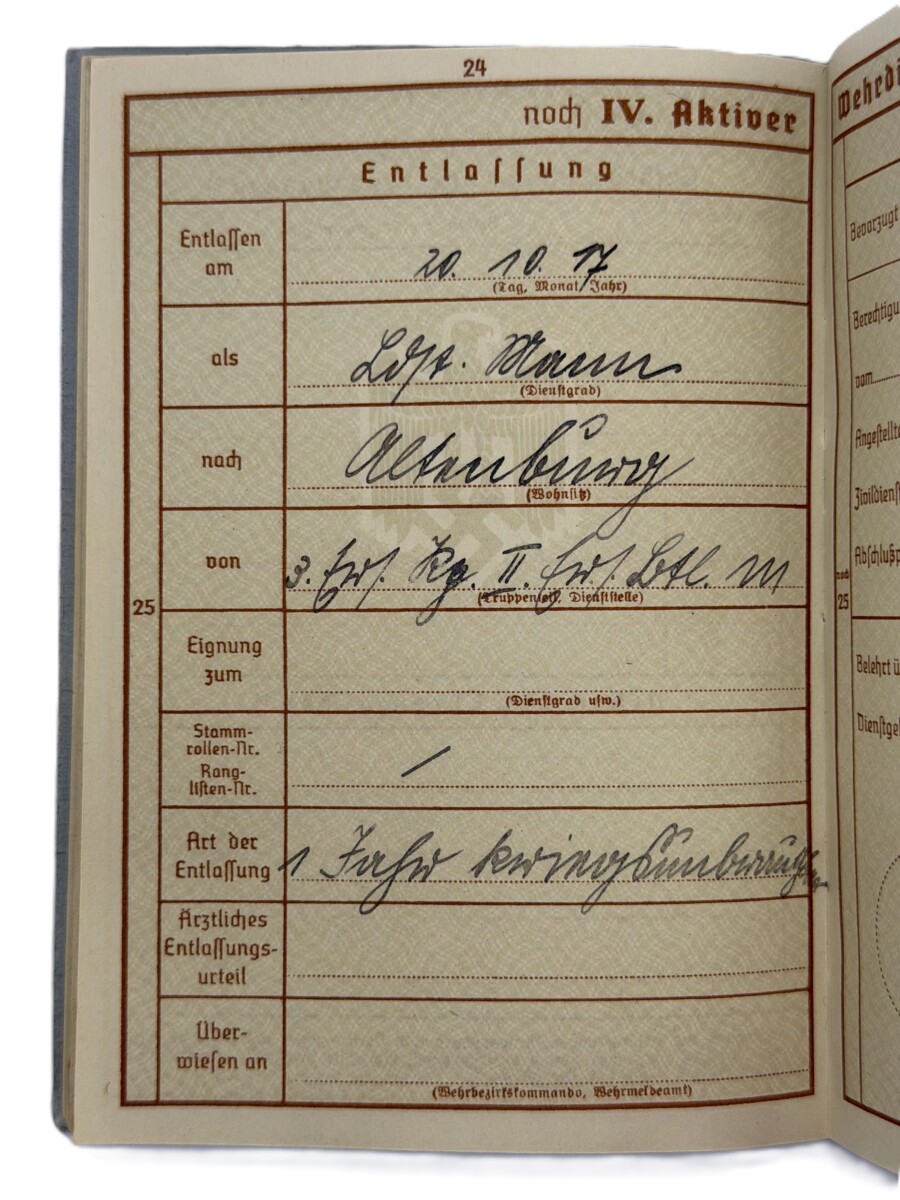 24
noch IV. Aktiver
Wehrdi
Entlassung
Entlassen am
20. 10. 17
(Tag, Monat, Jahr)
als
Ldst. Mann
(Dienstgrad)
nach
Altenburg
(Wohnsitz)
von
3. Ers. Kp. II. Ers. Btl. M
(Truppenteil, Dienststelle)
25
Eignung
zum
(Dienstgrad usw.)
Stamm-
rollen-Nr.
Rang-
listen-Nr.
Art der
Entlassung
1 Jahr kriegsunbrauchbar
Ärztliches
Entlassungs-
urteil
Über-
wiesen an
(Wehrbezirkskommando, Wehrmeldeamt)
Bevorzugt
Berechtigu
vom
Angestellte
Zivildiens
Abschlußp
noch
25
Belehrt ü
Dienstge